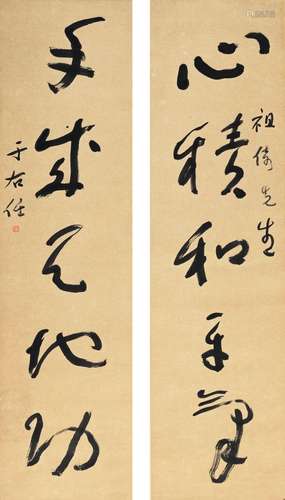 心積和平氣
祖先生
手成天地功
于右任